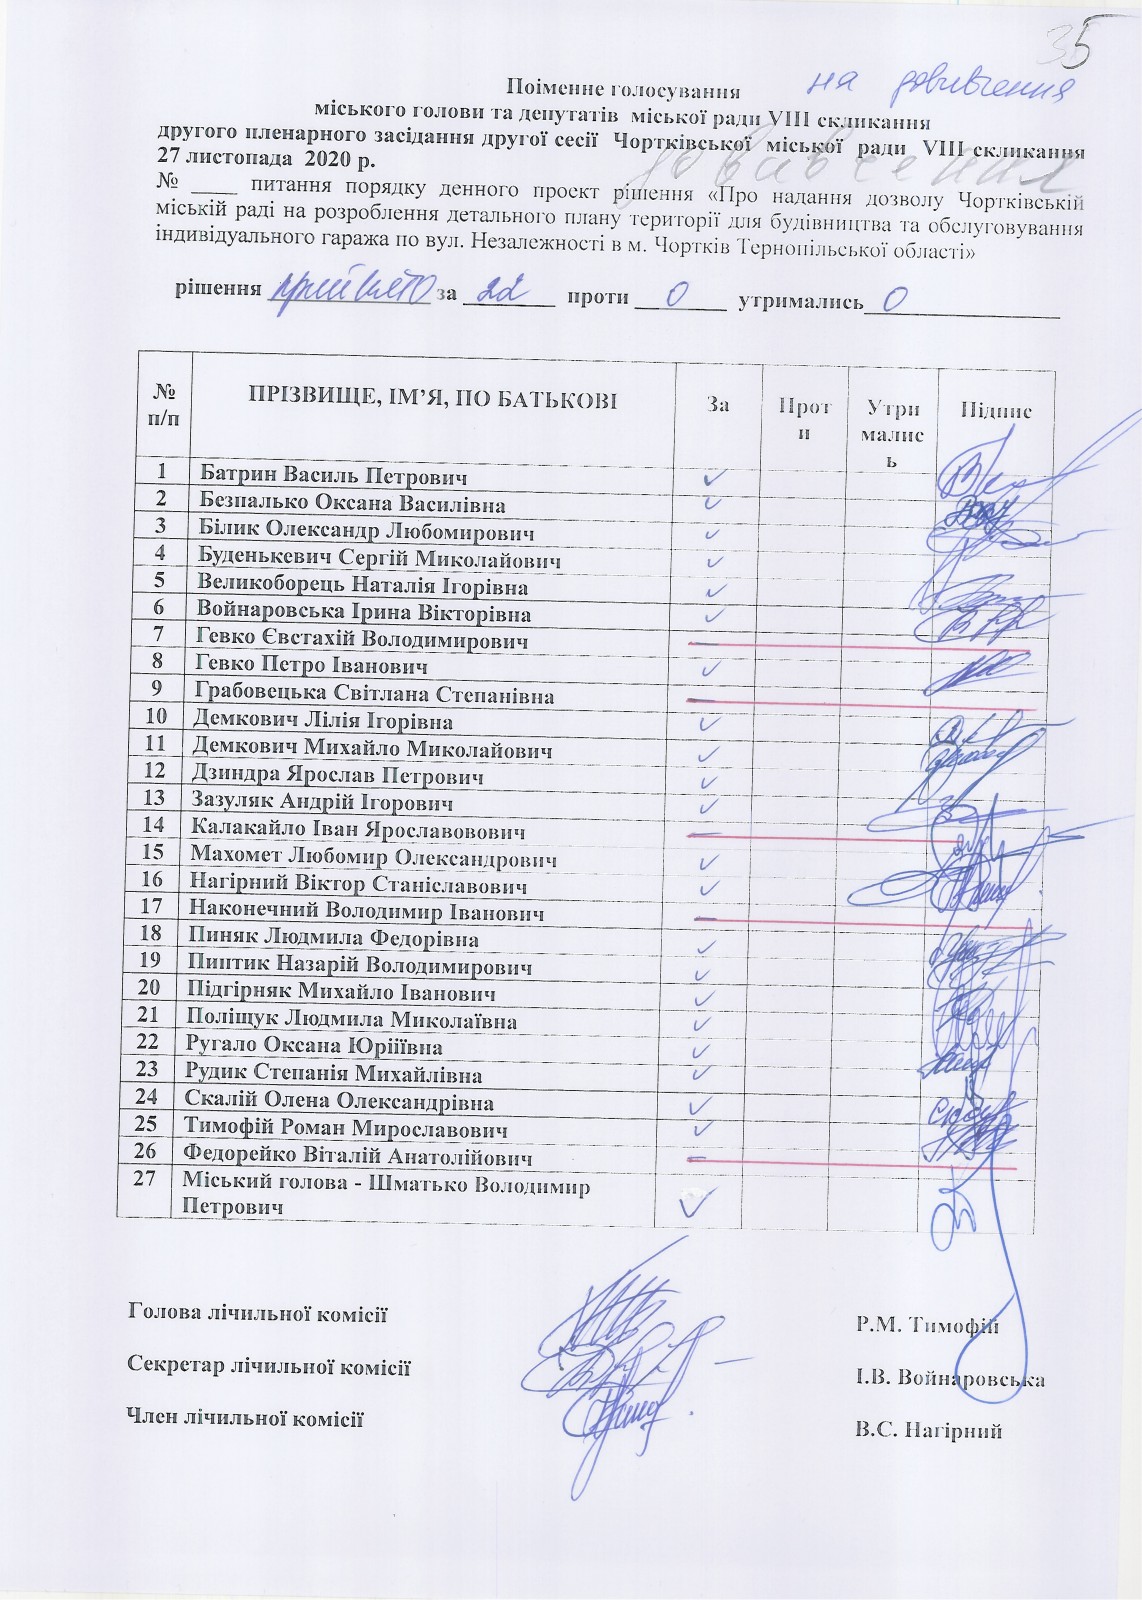 35
Поіменне голосування на довивчення
міського голови та депутатів міської ради VIII скликання
другого пленарного засідання другої сесії Чортківської міської ради VIII скликання
27 листопада 2020 р. довивчення
№ ____ питання порядку денного проєкт рішення «Про надання дозволу Чортківській
міській раді на розроблення детального плану території для будівництва та обслуговування
індивідуального гаража по вул. Незалежності в м. Чортків Тернопільської області»
рішення прийнято за 22 проти 0 утримались 0
№ п/п ПРІЗВИЩЕ, ІМ’Я, ПО БАТЬКОВІ За Проти Утрималисьь Підпис
1 Батрин Василь Петрович ✓
2 Безпалько Оксана Василівна ✓
3 Білик Олександр Любомирович ✓
4 Буденькевич Сергій Миколайович ✓
5 Великоборець Наталія Ігорівна ✓
6 Войнаровська Ірина Вікторівна ✓
7 Гевко Євстахій Володимирович —
8 Гевко Петро Іванович ✓
9 Грабовецька Світлана Степанівна —
10 Демкович Лілія Ігорівна ✓
11 Демкович Михайло Миколайович ✓
12 Дзиндра Ярослав Петрович ✓
13 Зазуляк Андрій Ігорович ✓
14 Калакайло Іван Ярославовович —
15 Махомет Любомир Олександрович ✓
16 Нагірний Віктор Станіславович ✓
17 Наконечний Володимир Іванович —
18 Пиняк Людмила Федорівна ✓
19 Пиптик Назарій Володимирович ✓
20 Підгірняк Михайло Іванович ✓
21 Поліщук Людмила Миколаївна ✓
22 Ругало Оксана Юріїївна ✓
23 Рудик Степанія Михайлівна ✓
24 Скалій Олена Олександрівна ✓
25 Тимофій Роман Мирославович ✓
26 Федорейко Віталій Анатолійович —
27 Міський голова - Шматько Володимир
Петрович ✓
Голова лічильної комісії Р.М. Тимофій
Секретар лічильної комісії І.В. Войнаровська
Член лічильної комісії В.С. Нагірний